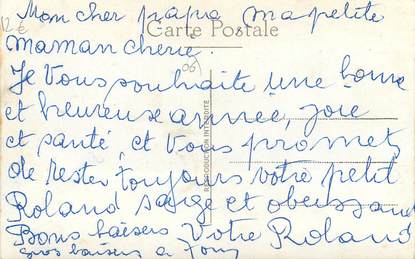 Mon cher papa ma petite
12 €
Carte Postale
maman cherie.
Je vous souhaite une bonne
et heureuse année, joie
et santé, et vous promet
de rester toujours votre petit
Roland sage et obeissant
Bons baisers Votre Roland
gros baisers a Tony
REPRODUCTION INTERDITE